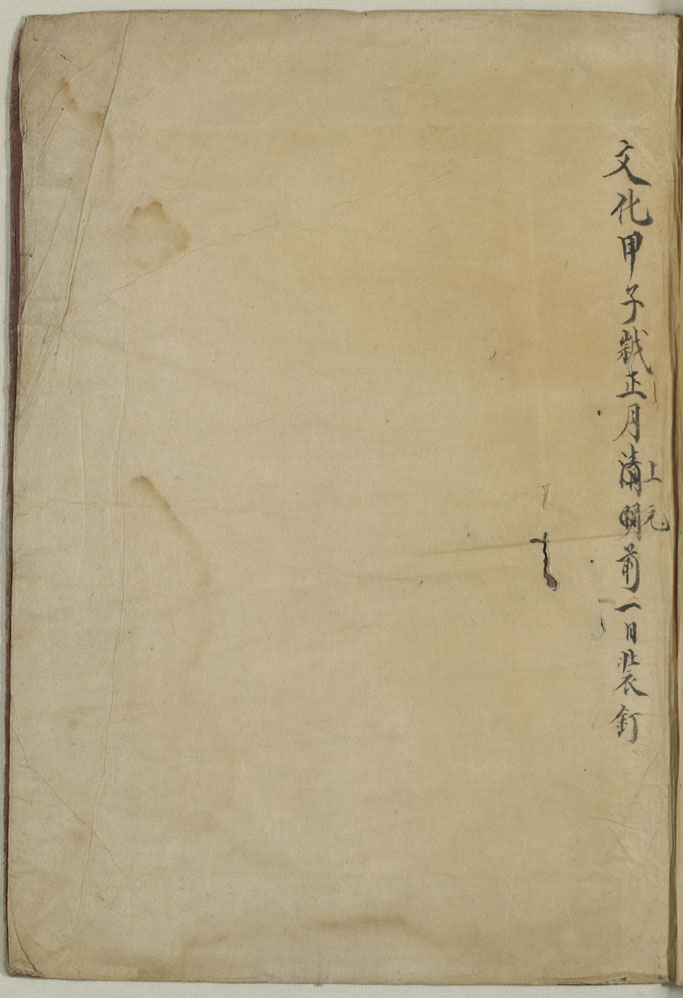 文化甲子歳正月清明前一日装釘
上元